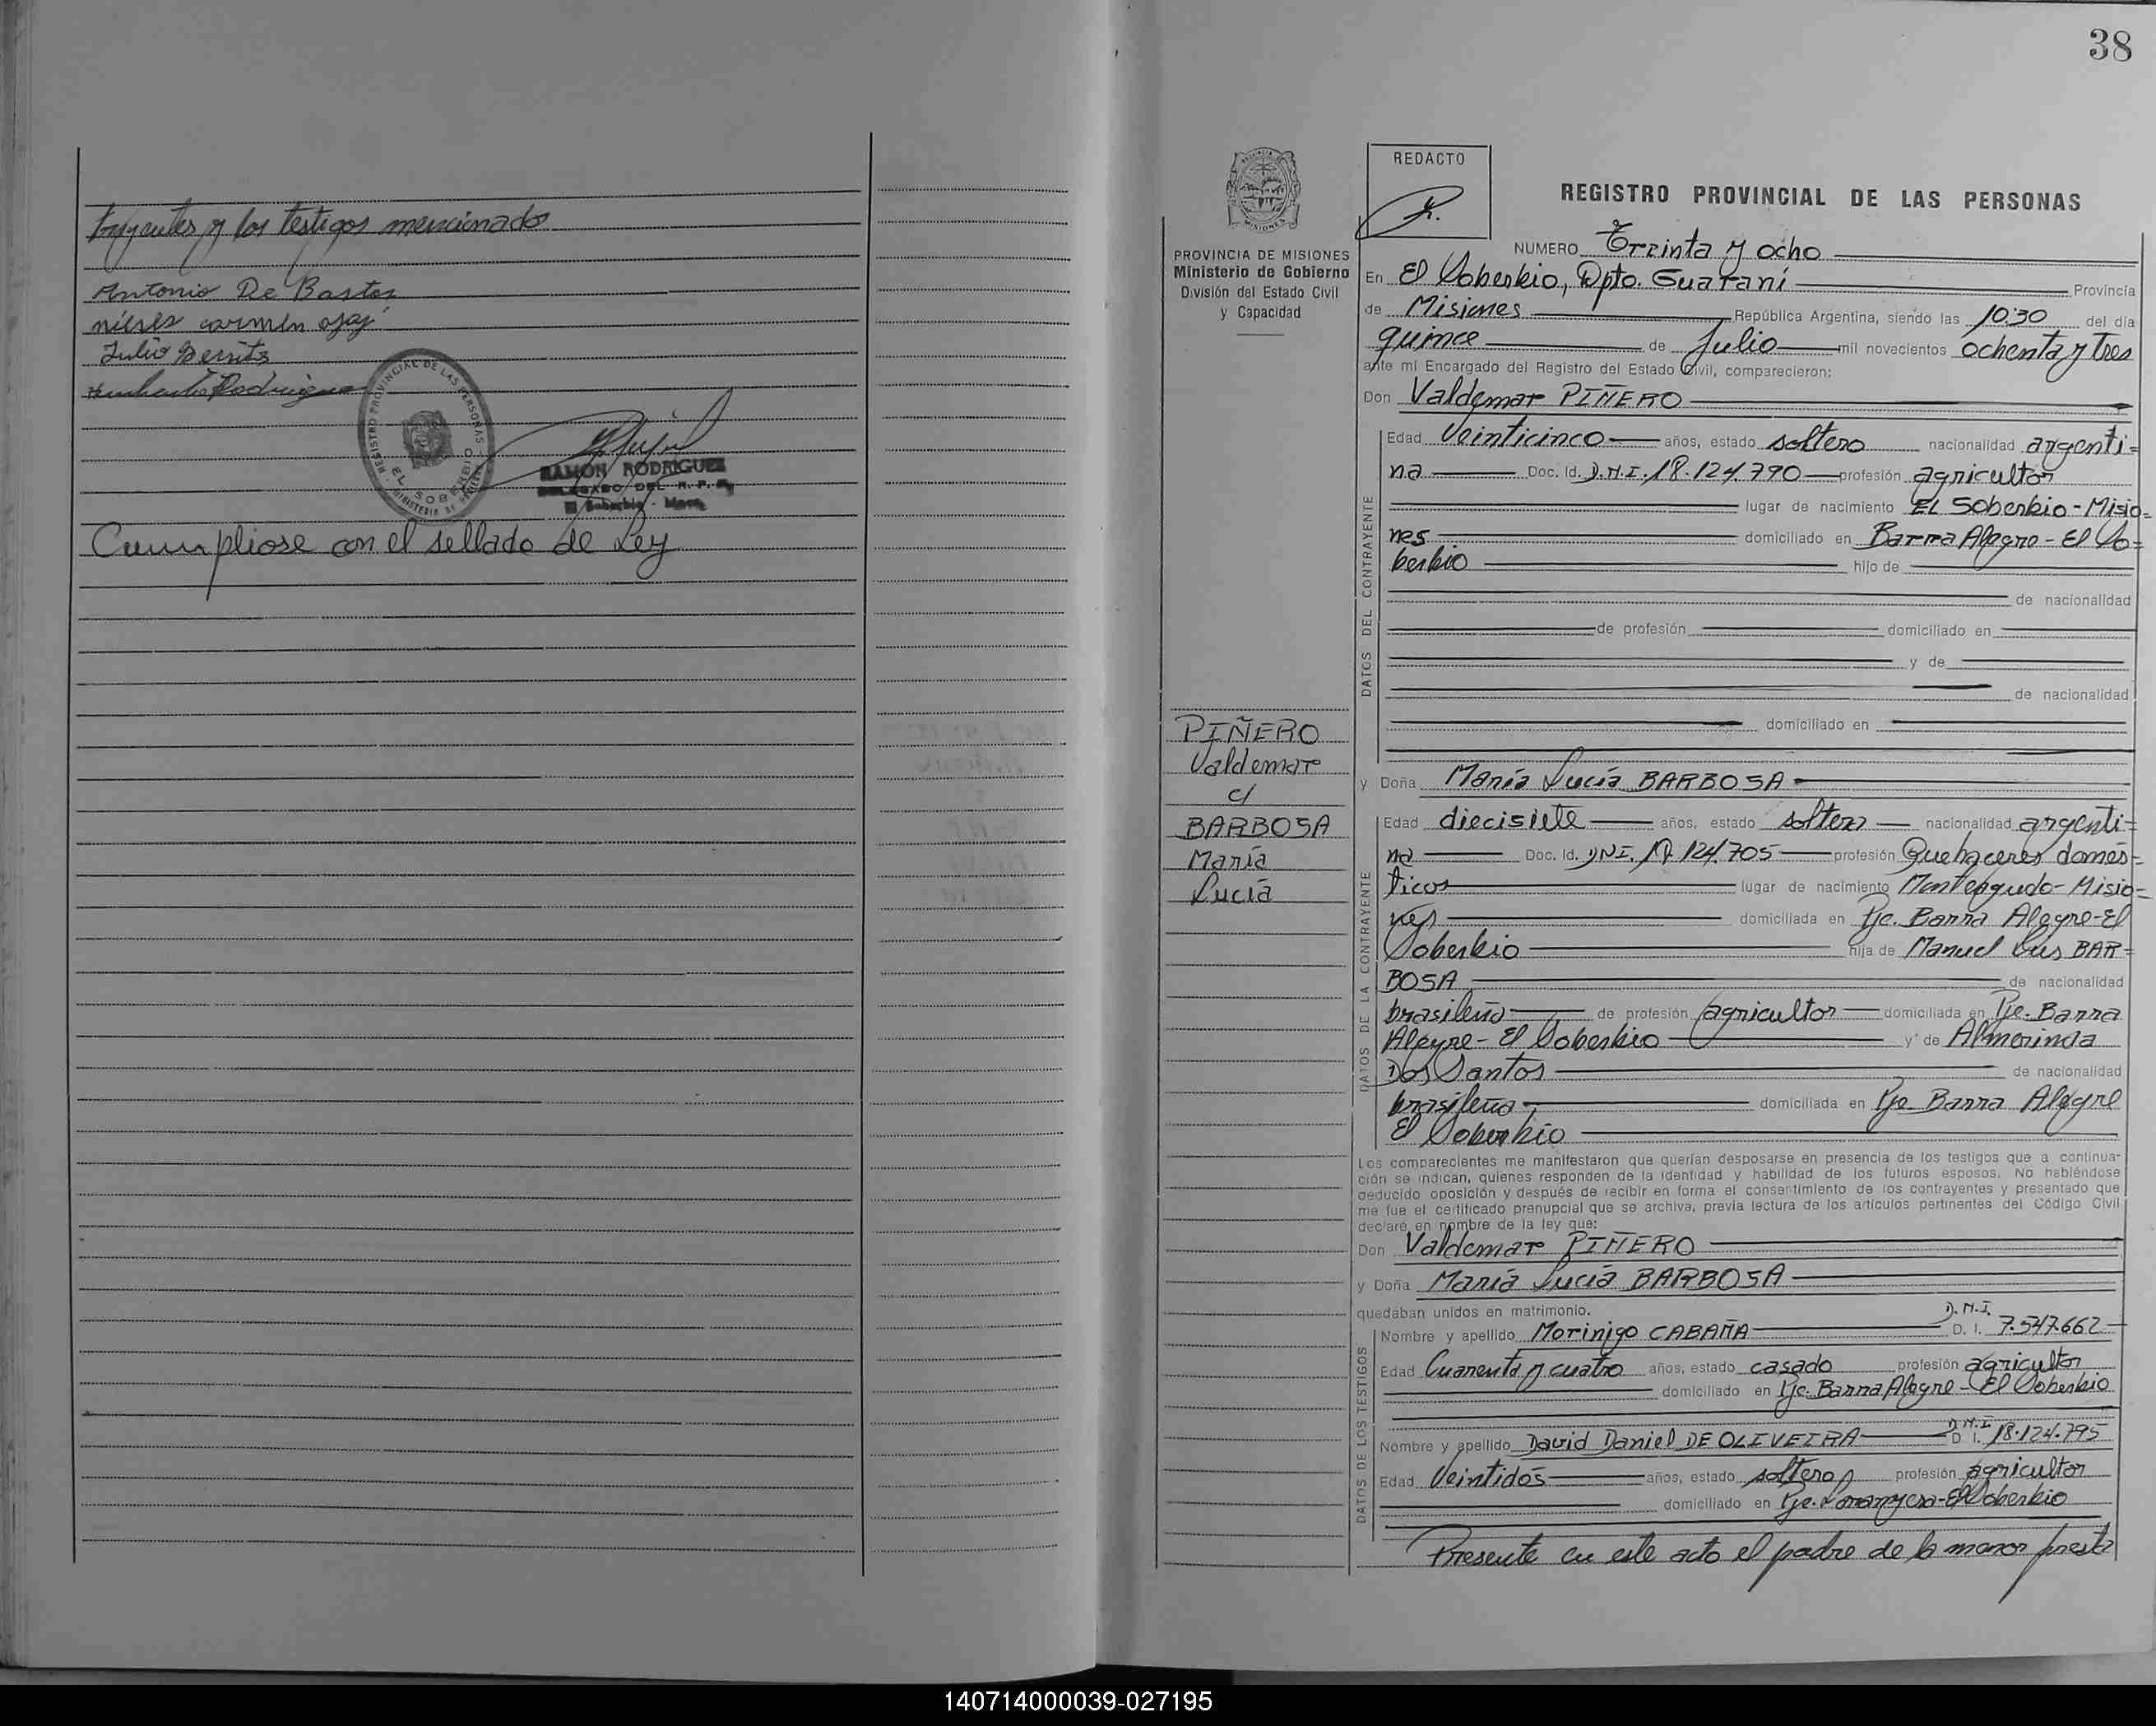 trayentes y los testigos mencionado
Antonio De Bastos
nieves carmen
Julio
Rodriguez
REGISTRO PROVINCIAL DE LAS PERSONAS
EL SOBERBIO
RAMON RODRIGUEZ
DELEGADO DEL R. P. P.
El Soberbio - Mnes.
Cumpliose con el sellado de Ley
38
REDACTO
REGISTRO PROVINCIAL DE LAS PERSONAS
MISIONES
PROVINCIA DE MISIONES
Ministerio de Gobierno
División del Estado Civil
y Capacidad
PIÑERO
Valdemar
c/
BARBOSA
María
Lucía
NUMERO Treinta y ocho
En El Soberbio, Dpto. Guaraní Provincia
de Misiones República Argentina, siendo las 10:30 del día
quince de Julio mil novecientos ochenta y tres
ante mi Encargado del Registro del Estado Civil, comparecieron:
Don Valdemar PIÑERO
DATOS DEL CONTRAYENTE
Edad Veinticinco años, estado soltero nacionalidad argenti=
na Doc. Id. D.N.I. 18.124.790 profesión agricultor
lugar de nacimiento EL Soberbio-Misio=
nes domiciliado en Barra Alegre - El So=
berbio hijo de
de nacionalidad
de profesión domiciliado en
y de
de nacionalidad
domiciliado en
y Doña María Lucía BARBOSA
DATOS DE LA CONTRAYENTE
Edad diecisiete años, estado soltera nacionalidad argenti=
na Doc. Id. DNI. 124.705 profesión Quehaceres domés=
ticos lugar de nacimiento Monteagudo-Misio=
nes domiciliada en Pje. Barra Alegre-El
Soberbio hija de Manuel Luis BAR=
BOSA de nacionalidad
brasileño de profesión agricultor domiciliada en Pje. Barra
Alegre - El Soberbio y de Almerinda
Dos Santos de nacionalidad
brasileña, domiciliada en Pje. Barra Alegre
El Soberbio
Los comparecientes me manifestaron que querían desposarse en presencia de los testigos que a continua-
ción se indican, quienes responden de la identidad y habilidad de los futuros esposos. No habiéndose
deducido oposición y después de recibir en forma el consentimiento de los contrayentes y presentado que
me fue el certificado prenupcial que se archiva, previa lectura de los artículos pertinentes del Código Civil
declaré en nombre de la ley que:
Don Valdemar PIÑERO
y Doña María Lucía BARBOSA
quedaban unidos en matrimonio.
DATOS DE LOS TESTIGOS
D.N.I.
Nombre y apellido Morinigo CABAÑA D. I. 7.547.662
Edad Cuarenta y cuatro años, estado casado profesión agricultor
domiciliado en Pje. Barra Alegre - El Soberbio
D.N.I.
Nombre y apellido David Daniel DE OLIVEIRA D. I. 18.124.795
Edad Veintidós años, estado soltero profesión agricultor
domiciliado en Pje. -El Soberbio
Presente en este acto el padre de la menor presta
140714000039-027195